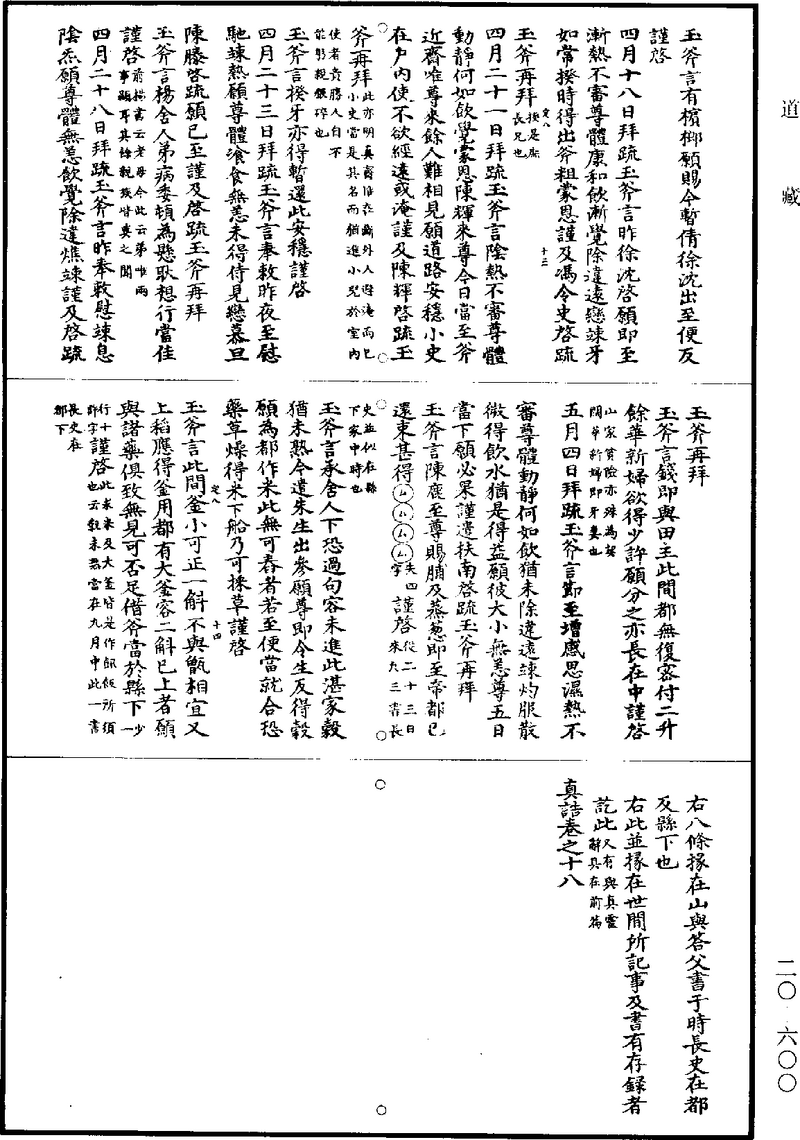 道藏
二〇·六〇〇
玉斧言有檳榔願賜今暫倩徐沈出至便反
謹啓
四月十八日拜疏玉斧言昨徐沈啓願即至
漸熱不審尊體康和飲漸覺除違遠戀竦牙
如常揆時得出斧粗蒙恩謹及馮令史啓疏
玉斧再拜揆是牙
長兄也
定八
十三
四月二十一日拜疏玉斧言陰熱不審尊體
動靜何如飲覺蒙恩陳輝來尊今日當至斧
近齋唯尊來餘人難相見願道路安穩小史
在戶內使不欲經遠或淹謹及陳輝啓疏玉
斧再拜此亦明真齋恒在斷外人避淹雨已
小史當是其名而猶進小兒於室內
使者貴勝人自不
能躬親碎也
玉斧言揆牙亦得暫還此安穩謹啓
四月二十三日拜疏玉斧言奉敕昨夜至慰
馳竦熱願尊體飡食無恙未得侍見戀慕旦
陳滕啓疏願已至謹及啓疏玉斧再拜
玉斧言楊舍人弟病委頓為懸耿想行當佳
謹啓前楊書云老母今此云弟唯兩
事顯耳其餘親族皆莫之聞
四月二十八日拜疏玉斧言昨奉敕慰竦息
陰炁願尊體無恙飲覺除違燋竦謹及啓疏
玉斧再拜
玉斧言錢即與田主此間都無復密付二升
餘華新婦欲得少許願分之亦長在中謹啓
山家貧險亦殊為契
闊華新婦即牙妻也
五月四日拜疏玉斧言節至增感思濕熱不
審尊體動靜何如飲猶未除違遠竦灼服散
微得飲水猶是得益願彼大小無恙尊五日
當下願必果謹遣扶南啓疏玉斧再拜
玉斧言陳鹿至尊賜脯及蒸葱即至帝都已
還東甚得厶厶厶厶失四
字謹啓從二十三日
來凡三書長
史並似在縣
下家中時也
玉斧言承舍人下恐過句容未進此湛家穀
猶未熟今遣朱生出參願尊即令生反得穀
願為都作米此無可舂者若至便當就合恐
藥草燥得米下船乃可揀草謹啓
定八
十四
玉斧言此間釜小可正一斛不與甑相宜又
上稻應得釜用都有大釜容二斛已上者願
與諸藥俱致無見可否足借斧當於縣下一
行謹啓此求米及大釜皆是作䭀飯所須
也云穀未熟當在九月中此一書
少
十
許字
長史在
都下
右八條掾在山與答父書于時長史在都
及縣下也
右此並掾在世間所記事及書有存錄者
訖此又有與真靈
辭具在前篇
真誥卷之十八